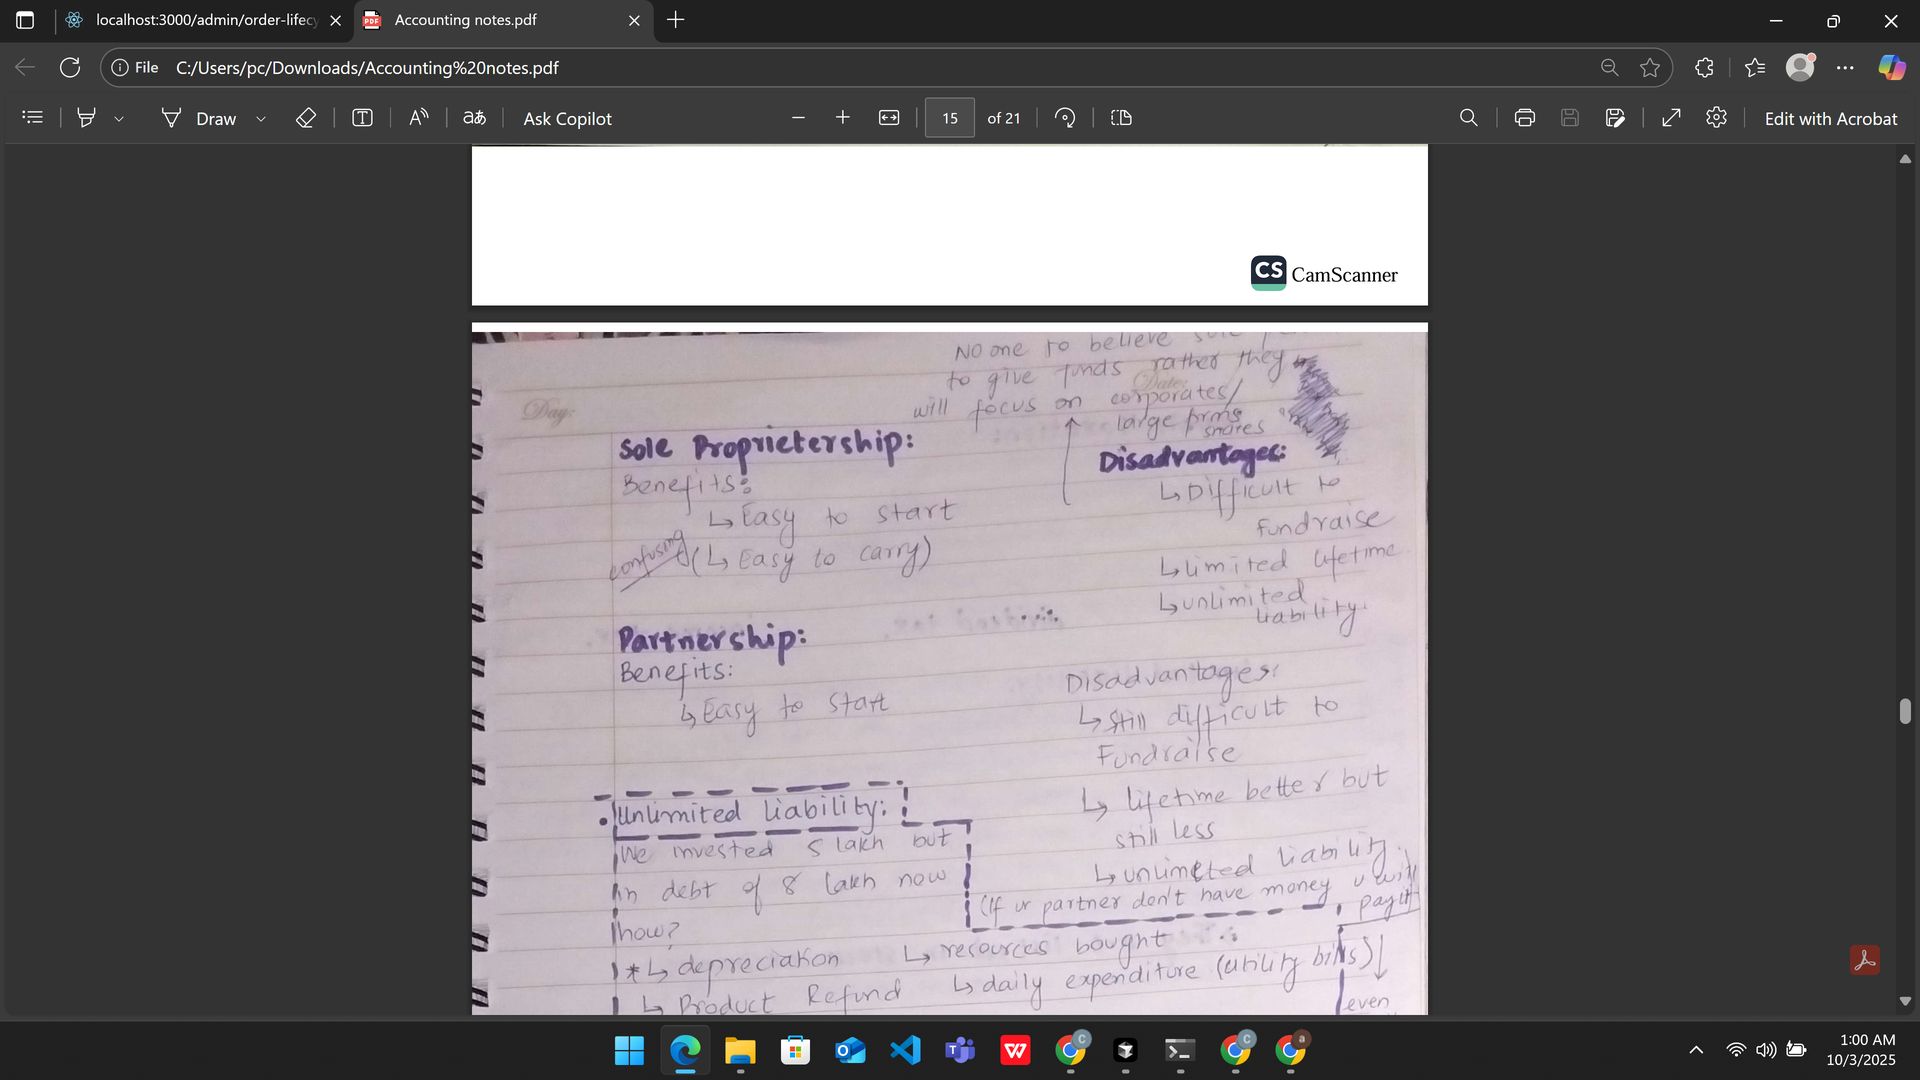 localhost:3000/admin/order-lifecy
Accounting notes.pdf
File C:/Users/pc/Downloads/Accounting%20notes.pdf
Draw
Ask Copilot
15 of 21
Edit with Acrobat
CS CamScanner
No one to believe sole
to give funds rather they
will focus on corporates/
large firms
shares
Day:
Date:
Sole Proprietership:
Benefits:
↳ Easy to start
confusing (↳ Easy to carry)
Disadvantages:
↳ Difficult to
Fundraise
↳ limited lifetime
↳ unlimited
liability.
Partnership:
Benefits:
↳ Easy to start
Disadvantages:
↳ still difficult to
Fundraise
↳ lifetime better but
still less
↳ unlimited liability.
(If ur partner don't have money u will
pay it)
Unlimited liability:
We invested 5 lakh but
in debt of 8 lakh now
how?
* ↳ depreciation ↳ resources bought
↳ Product Refund ↳ daily expenditure (utility bills)
even
1:00 AM
10/3/2025